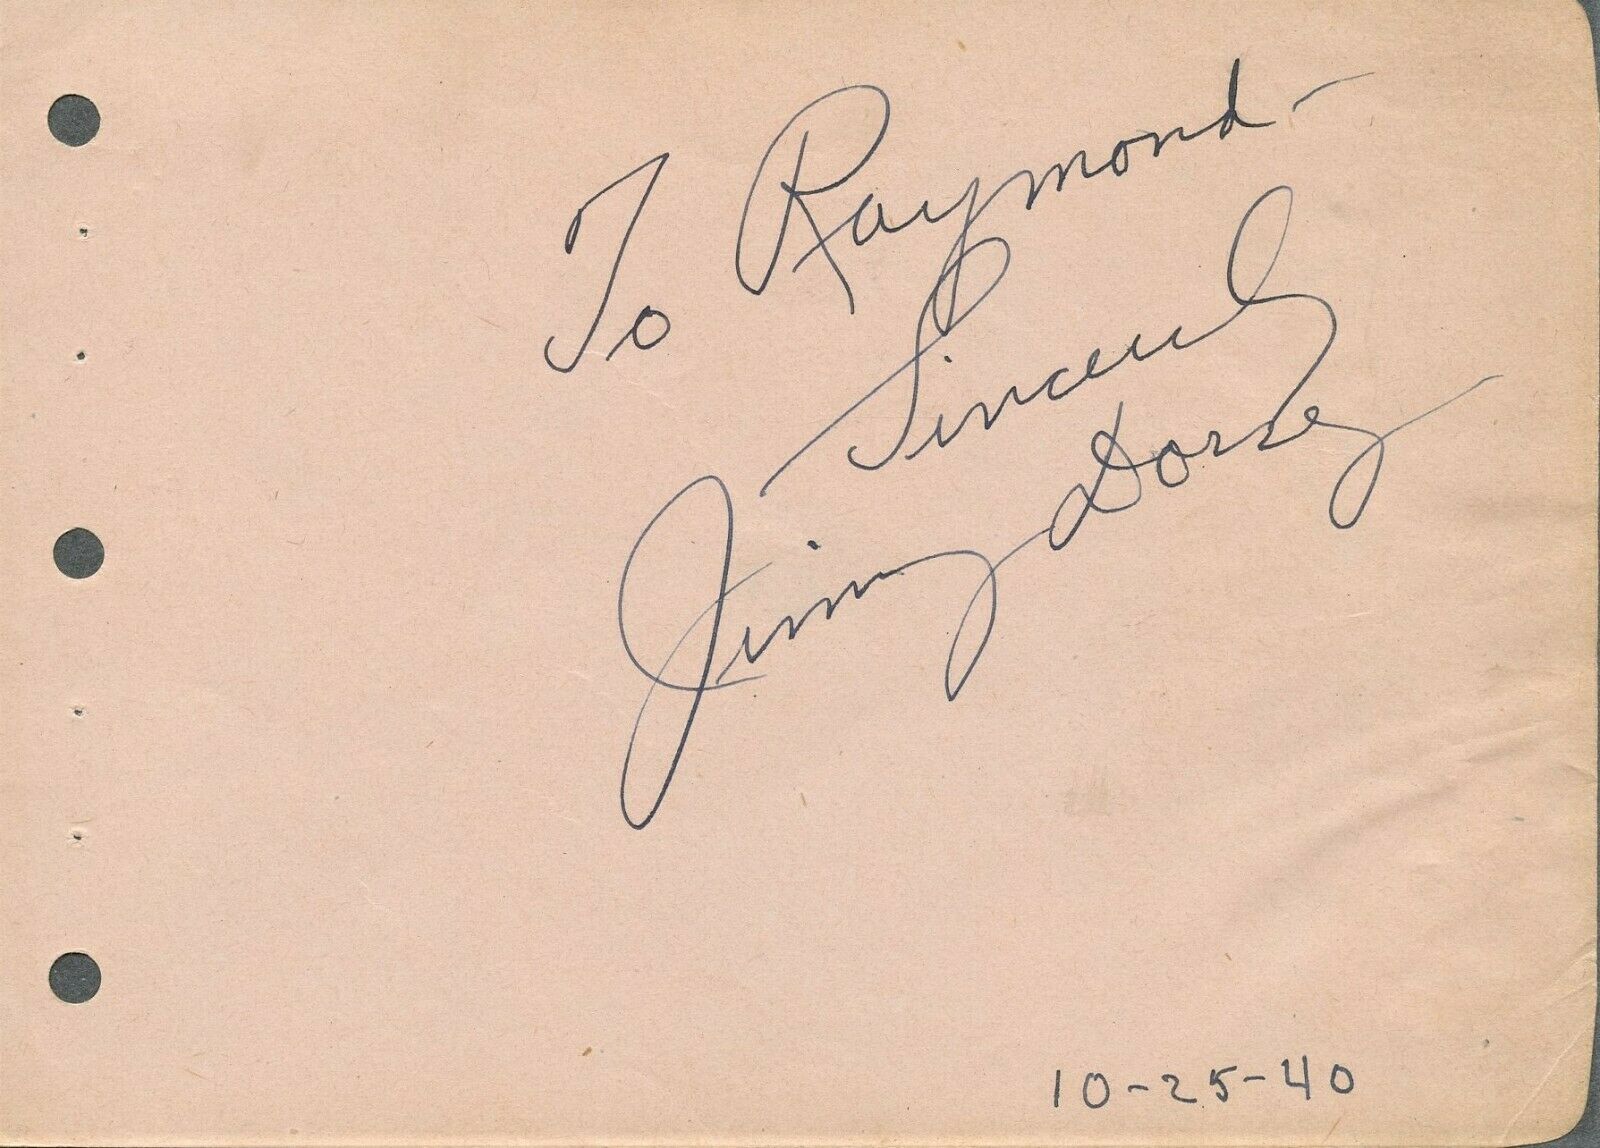 To Raymond -
Sincerely
Jimmy Dorsey
10-25-40